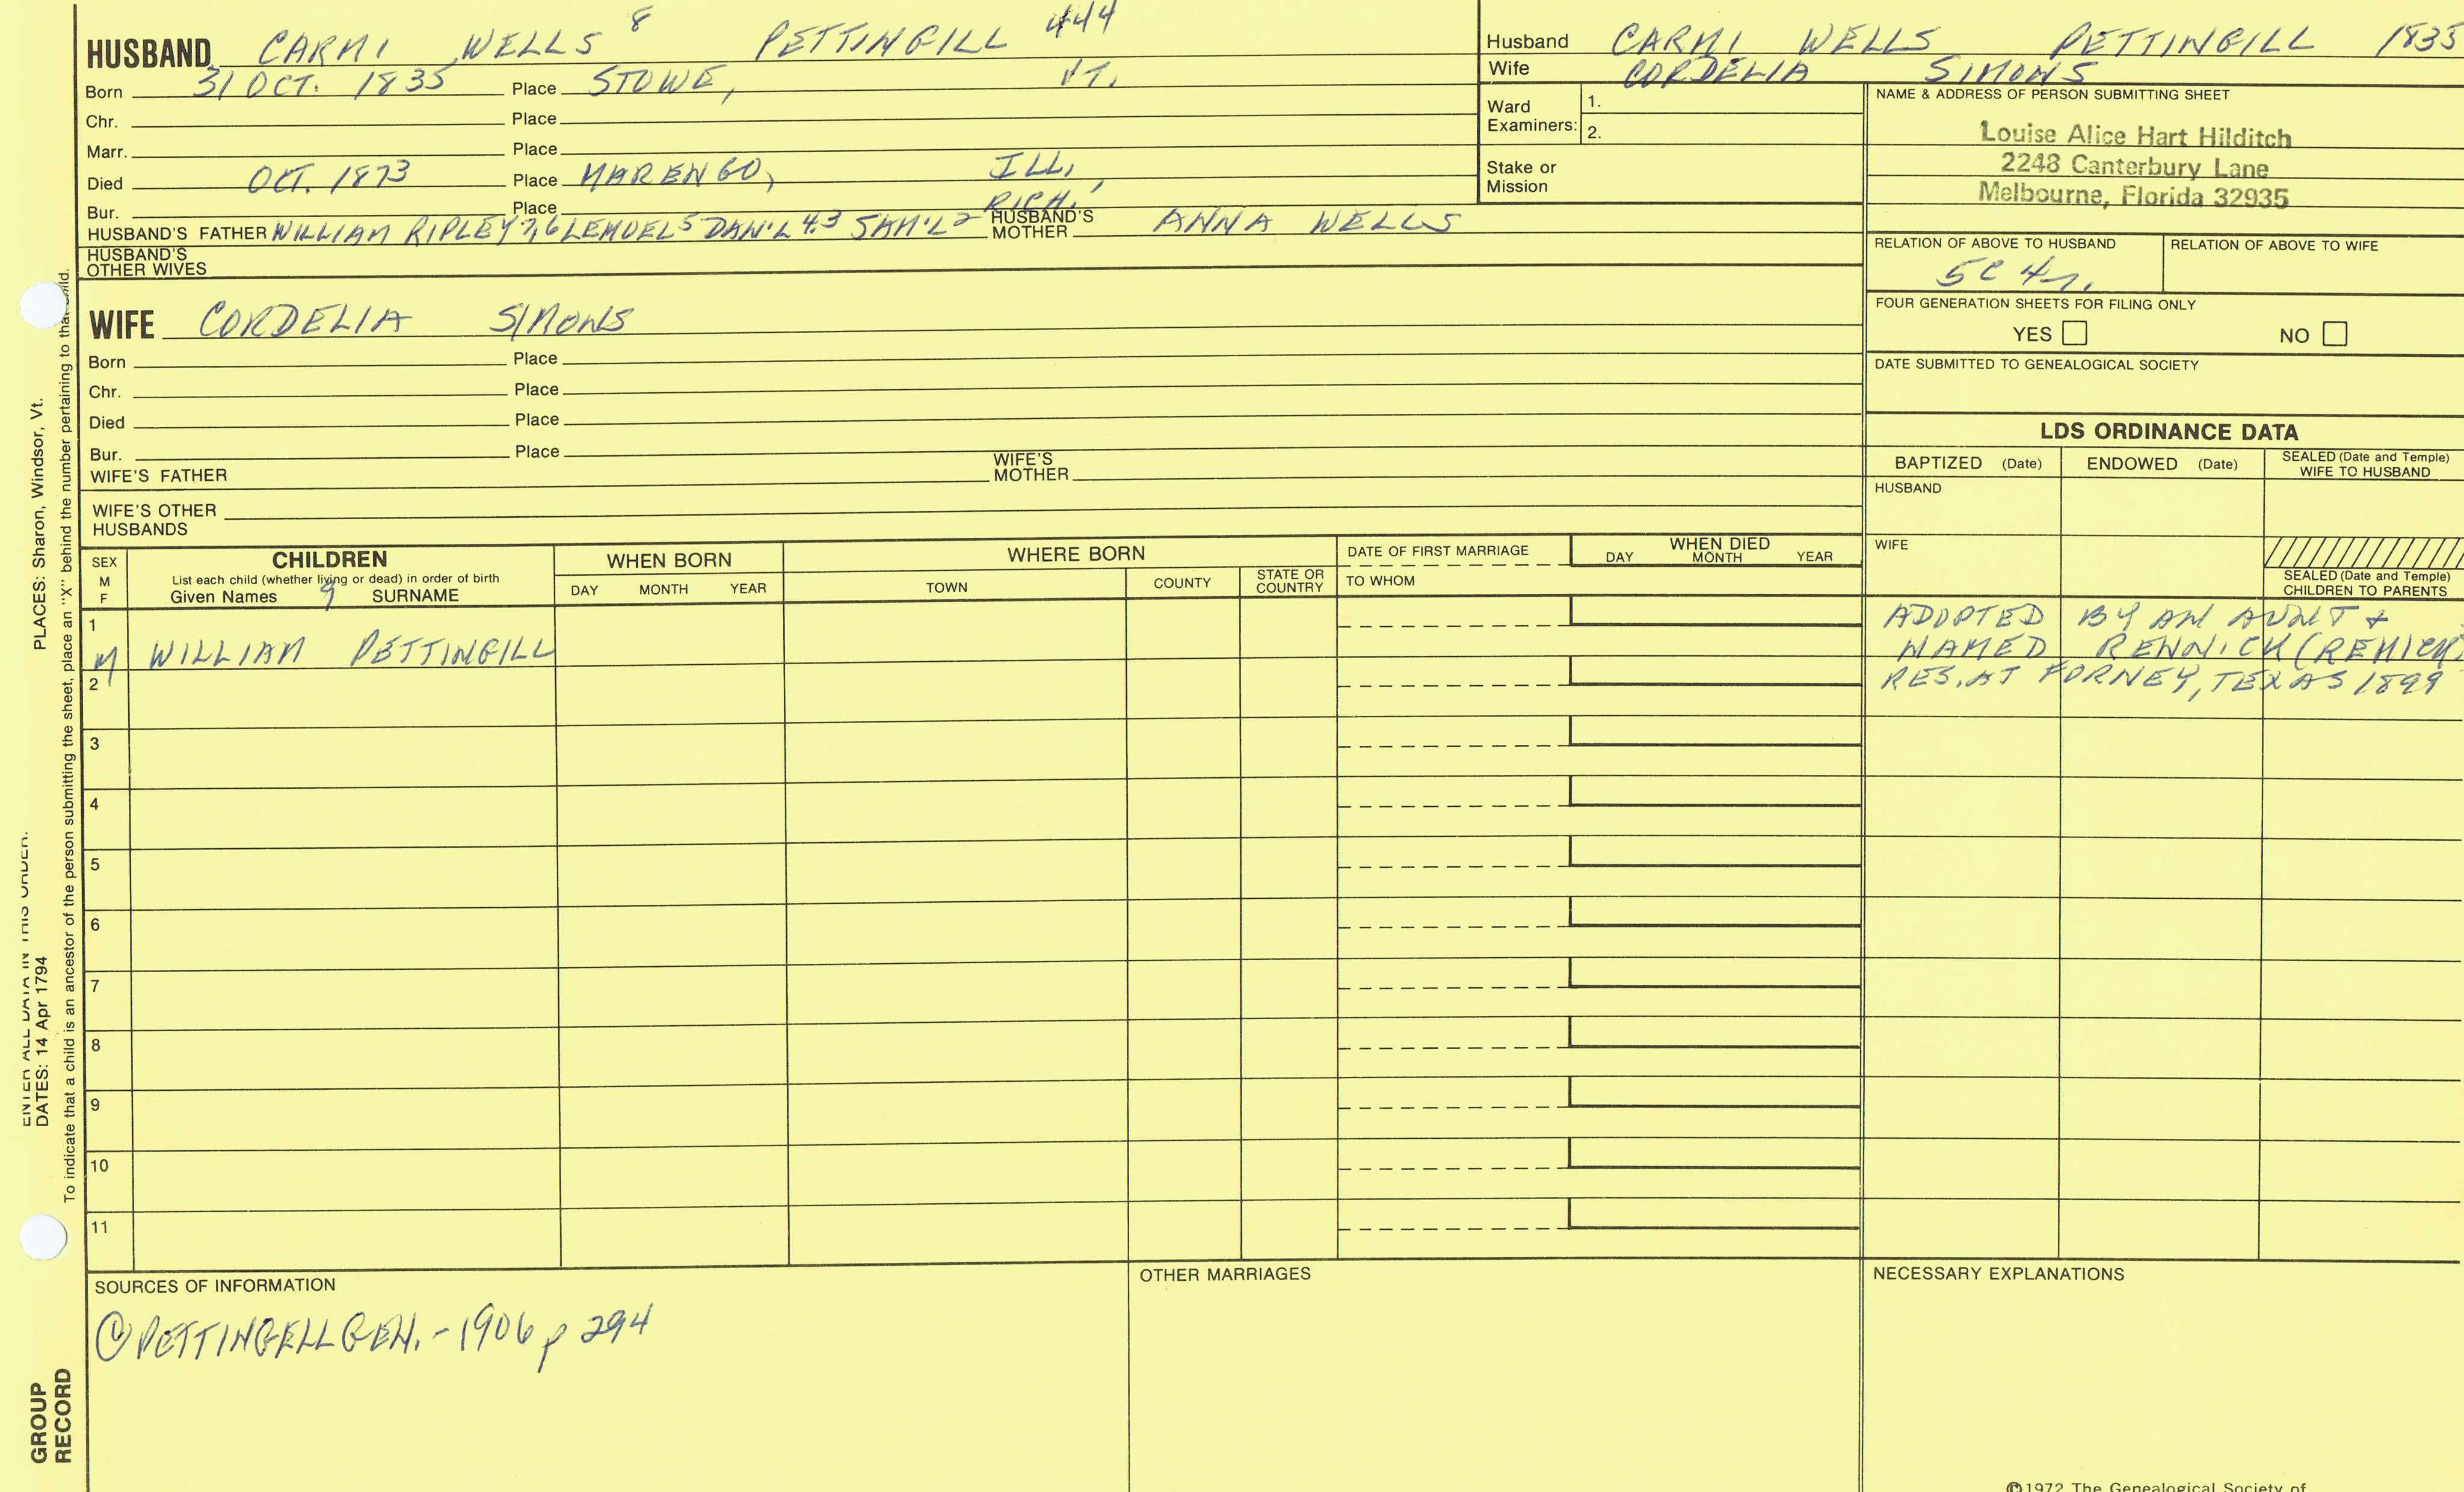 HUSBAND CARMI WELLS 8 PETTINGILL 444
Born 31 OCT. 1835 Place STOWE, VT.
Chr. Place
Marr. Place
Died OCT. 1873 Place MARENGO, ILL.
Bur. Place
HUSBAND'S FATHER WILLIAM RIPLEY 7,6 LEMUEL 5 DAN'L 4,3 SAM'L 2 RICH.' HUSBAND'S MOTHER ANNA WELLS
HUSBAND'S OTHER WIVES
WIFE CORDELIA SIMONS
Born Place
Chr. Place
Died Place
Bur. Place
WIFE'S FATHER WIFE'S MOTHER
WIFE'S OTHER HUSBANDS
Husband CARMI WELLS PETTINGILL 1835
Wife CORDELIA SIMONS
Ward Examiners: 1.
2.
Stake or Mission
NAME & ADDRESS OF PERSON SUBMITTING SHEET
Louise Alice Hart Hilditch
2248 Canterbury Lane
Melbourne, Florida 32935
RELATION OF ABOVE TO HUSBAND RELATION OF ABOVE TO WIFE
5C 4r.
FOUR GENERATION SHEETS FOR FILING ONLY
YES NO
DATE SUBMITTED TO GENEALOGICAL SOCIETY
LDS ORDINANCE DATA
BAPTIZED (Date) ENDOWED (Date) SEALED (Date and Temple) WIFE TO HUSBAND
HUSBAND
WIFE
SEALED (Date and Temple) CHILDREN TO PARENTS
SEX M F
CHILDREN
List each child (whether living or dead) in order of birth
Given Names 9 SURNAME
WHEN BORN
DAY MONTH YEAR
WHERE BORN
TOWN COUNTY STATE OR COUNTRY
DATE OF FIRST MARRIAGE
TO WHOM
WHEN DIED
DAY MONTH YEAR
1
M WILLIAM PETTINGILL
ADOPTED BY AN AUNT &
NAMED RENNICK (REMICK)
RES. AT FORNEY, TEXAS 1899
2
3
4
5
6
7
8
9
10
11
SOURCES OF INFORMATION
① PETTINGELL GEN. - 1906 p 294
OTHER MARRIAGES
NECESSARY EXPLANATIONS
©1972 The Genealogical Society of
ENTER ALL DATA IN THIS ORDER.
DATES: 14 Apr 1794
PLACES: Sharon, Windsor, Vt.
To indicate that a child is an ancestor of the person submitting the sheet, place an "X" behind the number pertaining to that child.
GROUP
RECORD